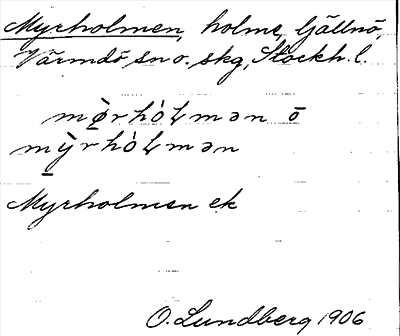 Myrholmen, holme, Gällnö,
Värmdö sn o. skg, Stockh. l.
mø̀rhòɫmən ō
mỳrhòɫmən
Myrholmen ek
O. Lundberg 1906